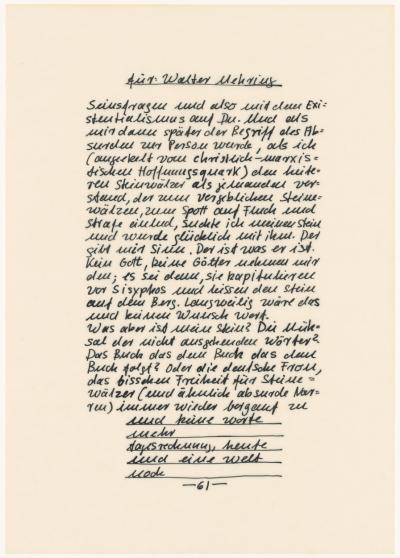 für: Walter Mehring
Seinsfragen und also mit dem Exi=
stentialismus auf Du. Und als
mir dann später der Begriff des Ab=
surden zur Person wurde, als ich
(angeekelt vom christlich-marxis=
tischen Hoffnungsquark) den heite=
ren Steinwälzer als jemanden ver=
stand, der zum vergeblichen Steine=
wälzen, zum Spott auf Fluch und
Strafe einlud, suchte ich meinen Stein
und wurde glücklich mit ihm. Der
gibt mir Sinn. Der ist was er ist.
Kein Gott, keine Götter nehmen mir
den; es sei denn, sie kapitulieren
vor Sisyphos und lassen den Stein
auf dem Berg. Langweilig wäre das
und keinen Wunsch wert.
Was aber ist mein Stein? Die Müh=
sal der nicht ausgehenden Wörter?
Das Buch das dem Buch das dem
Buch folgt? Oder die deutsche Fron,
das bisschen Freiheit für Steine=
wälzer (und ähnlich absurde Nar=
ren) immer wieder bergauf zu
und keine worte
mehr
tagsrechnung, heute
und eine welt
noch
—61—